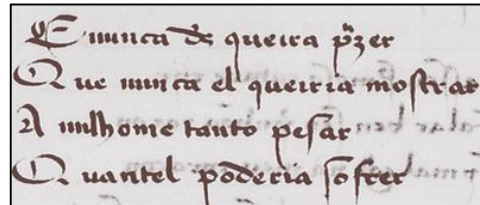 E nunca ds queira p̃zer
Que nunca el queiria mostrar
A nulhome tanto pesar
Quantel poderia sofrer